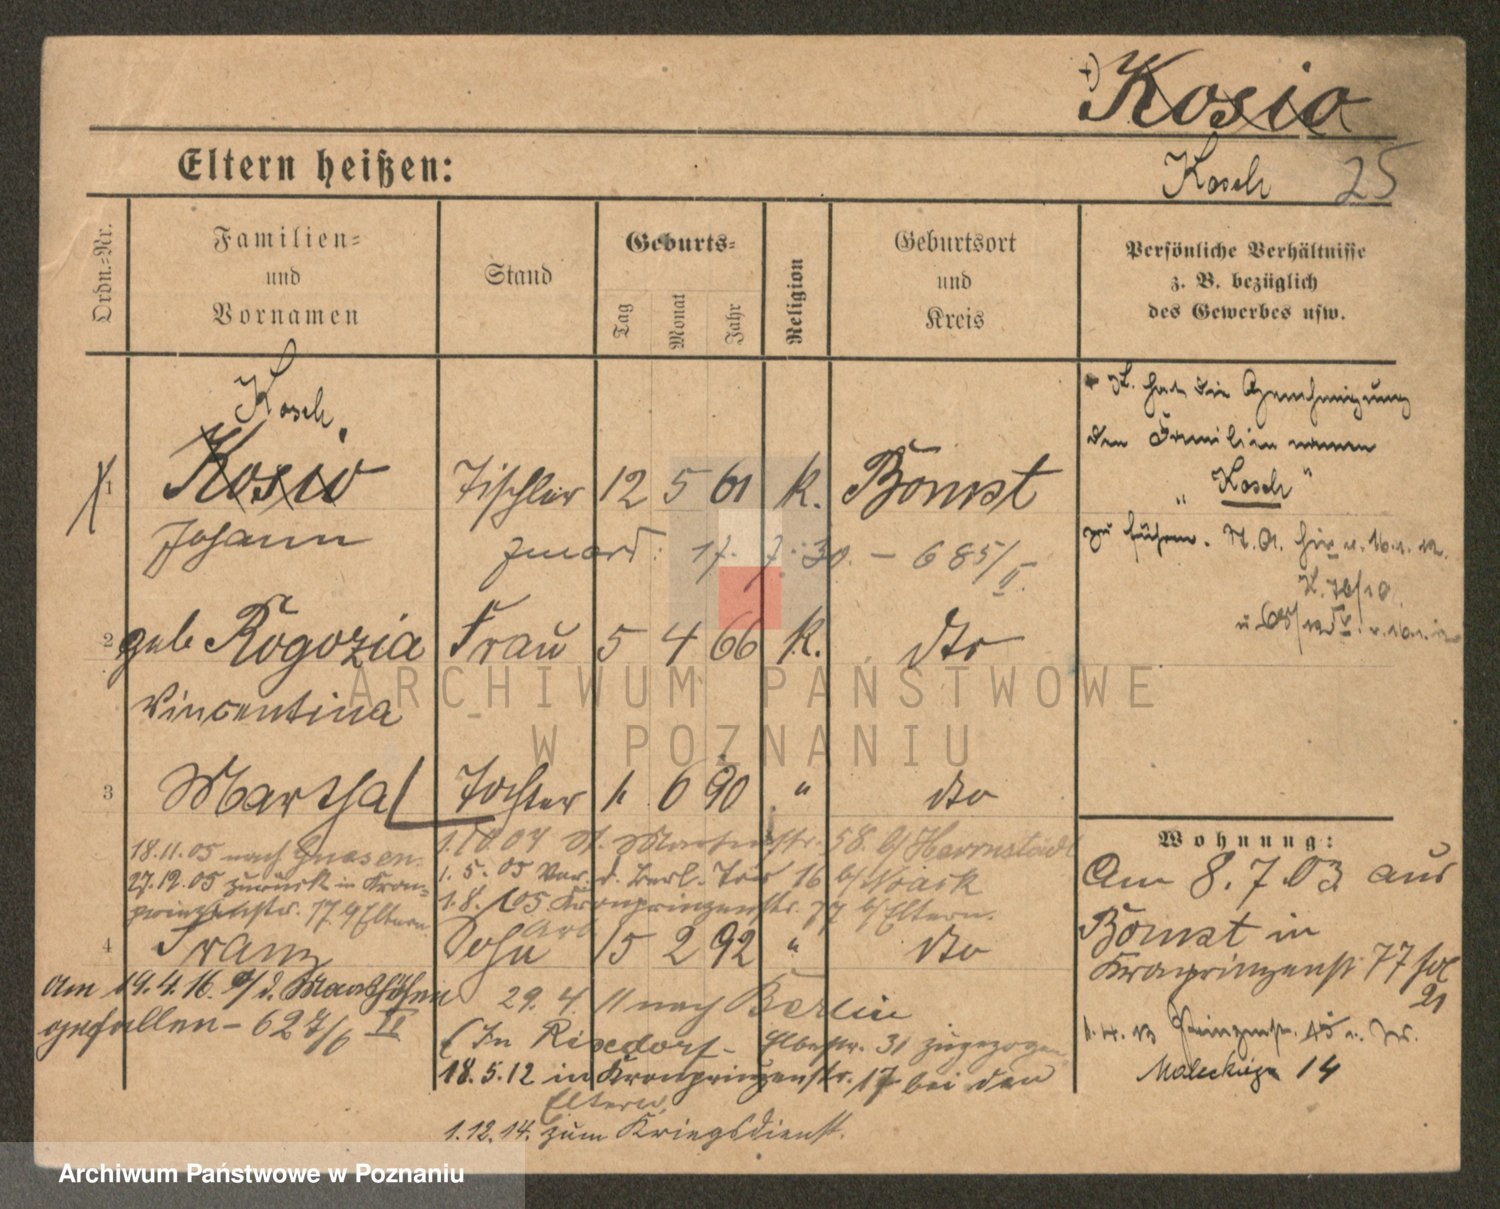 +) Kosio
Eltern heißen:
Kosch 25
Ordn.-Nr.
Familien-
und
Vornamen
Stand
Geburts-
Tag
Monat
Jahr
Religion
Geburtsort
und
Kreis
Persönliche Verhältnisse
z. B. bezüglich
des Gewerbes usw.
Kosch.
1 Kosio Tischler 12 5 61 k. Bomst
Johann
17. 7. 30. – 685/II.
2 geb Rogozia Frau 5 4 66 k. dto
Vincentina
3 Martha Tochter 1. 6 90 " dto
18.11.05 nach Gnesen.
27.12.05 zurück in Kron-
prinzenstr. 77. b/Eltern.
1.10.04 St. Martinstr. 58. b/Herrnstadt
1. 5. 05 Vor. d. Berl. Tor 16 b/Noack
1.8. 05 Kronprinzenstr. 77 b/Eltern.
4 Franz Sohn 15 2 92 " dto
Am 19.4.16. a/d.
gefallen – 627/6 II
29. 4. 11 nach Berlin
(In Rixdorf – Elbestr. 31 zugezogen
18.5.12 in Kronprinzenstr. 17 bei den
Eltern.
1.12.14. zum Kriegsdienst.
K. hat die Genehmigung
den Familiennamen
„Kosch"
zu führen.
Wohnung:
Am 8.7.03 aus
Bomst in
Kronprinzenst 77
21
1.4.13 Prinzenstr. 45
Maleckiego 14
ARCHIWUM PAŃSTWOWE
W POZNANIU
Archiwum Państwowe w Poznaniu